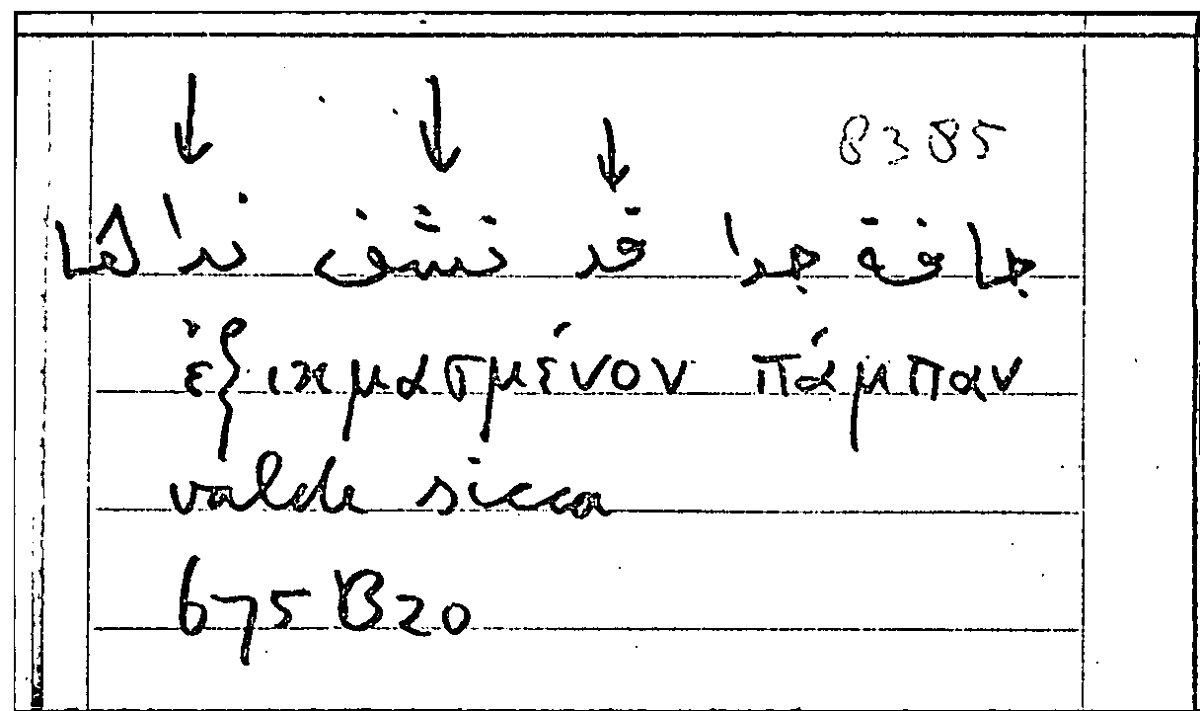 8385
جافة جدا قد نشف نداها
ἐξικμασμένον πάμπαν
valde sicca
675 B20